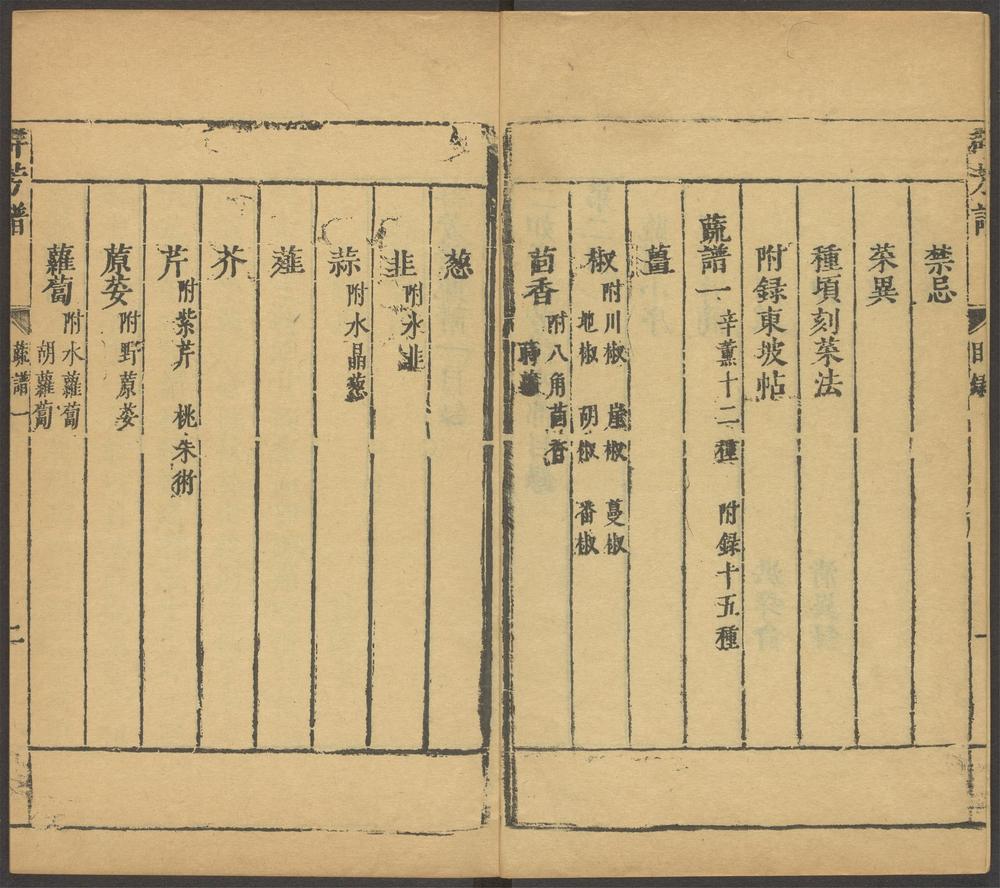 禁忌
菜異
種頃刻菜法
附録東坡帖
蔬譜一 辛薰十二種 附録十五種
薑
椒 附川椒 崖椒 蔓椒
地椒 胡椒 番椒
茴香 附八角茴香
蒔蘿
葱
韭 附水韭
蒜 附水晶葱
薤
芥
芹 附紫芹 桃朱術
蒝荽 附野蒝荽
蘿蔔 附水蘿蔔
胡蘿蔔
群芳譜 蔬譜一 二